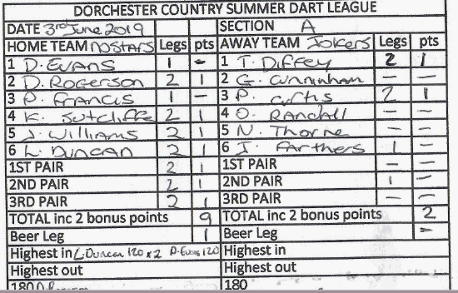 DORCHESTER COUNTRY SUMMER DART LEAGUE
DATE 3rd June 2019 SECTION A
HOME TEAM NOSTARS Legs pts AWAY TEAM Jokers Legs pts
1 D. Evans 1 - 1 T. Diffey 2 1
2 D. Rogerson 2 1 2 G. Cunninham - -
3 P. Francis 1 - 3 P. Curtis 2 1
4 K. Sutcliffe 2 1 4 O. Randall - -
5 J. Williams 2 1 5 N. Thorne - -
6 L. Duncan 2 1 6 I. Farthers 1 -
1ST PAIR 2 1 1ST PAIR - -
2ND PAIR 2 1 2ND PAIR 1 -
3RD PAIR 2 1 3RD PAIR - -
TOTAL inc 2 bonus points 9 TOTAL inc 2 bonus points 2
Beer Leg 1 Beer Leg -
Highest in L. Duncan 120 x 2 D. Evans 120 Highest in
Highest out Highest out
180 180